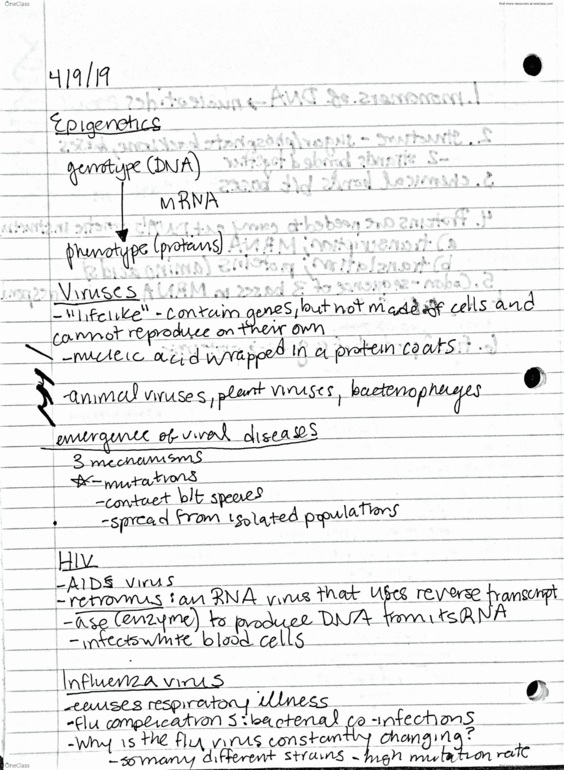 OneClass
find more resources at oneclass.com
4/9/19
Epigenetics
genotype (DNA)
mRNA
phenotype (protiens)
Viruses
-"lifelike" - contain genes, but not made of cells and
cannot reproduce on their own
-nucleic acid wrapped in a protein coats
-animal viruses, plant viruses, bacteriophages
emergence of viral diseases
3 mechanisms
☆-mutations
-contact b/t species
-spread from isolated populations
HIV
-AIDS virus
-retrovirus: an RNA virus that uses reverse transcript
-ase (enzyme) to produce DNA from its RNA
-infects white blood cells
Influenza virus
-causes respiratory illness
-flu complications: bacterial co-infections
-Why is the flu virus constantly changing?
-so many different strains - high mutation rate
OneClass
find more resources at oneclass.com